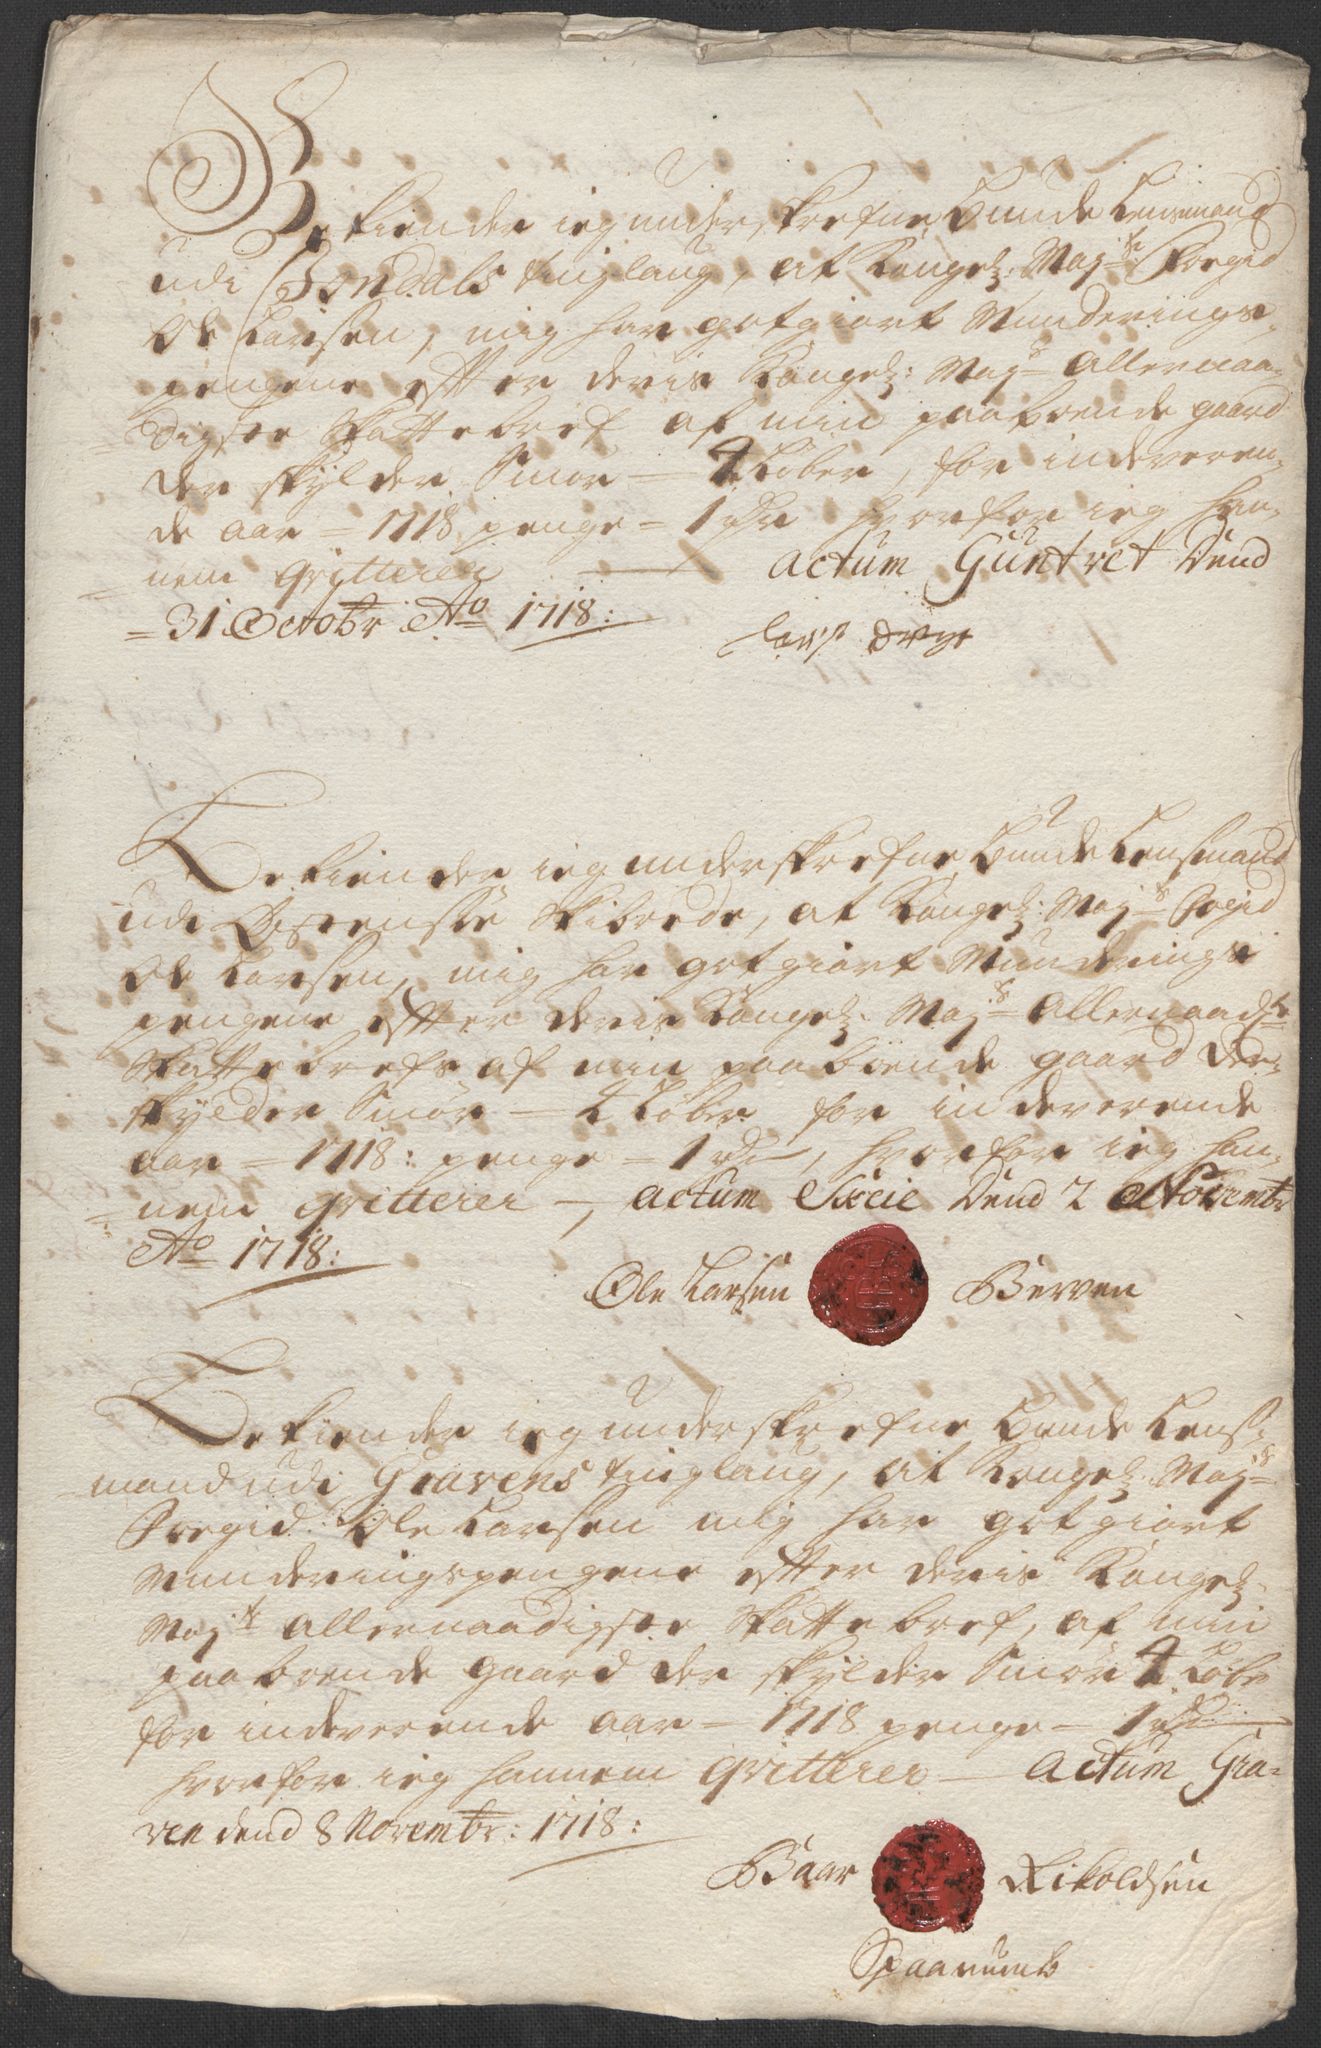 Bekiender ieg underskrefne Bunde Lensmand
udi Jondals tinglaug, at Kongel: May:ts Foegid
Ole Larsen, mig har gotgiort Munderings
pengene effter deris Kongel: May:ts Allernaa-
digste Skattebref af min paaboende gaard
der skylder Smør — 4 Løber, for indeveren-
de aar — 1718 penge — 1 rdr hvorfor ieg han-
nem qvitterer — actum Guntvet Dend
31 Octobr Ao 1718:
Bekiender ieg underskrefne Bunde Lensmand
udi Østensøe Skibrede, at Kongel: May:ts Foegid
Ole Larsen, mig har gotgiort Munderings
pengene effter deris Kongel: May:ts Allernaadste
Skattebrefs af min paaboende gaard der
skylder Smør — 4 Løber for indeverende
aar — 1718: penge — 1 rdr, hvorfor ieg han-
nem qvitterer —, actum Dend 2 Novembr
Ao 1718:
Ole Larsen Berven
Bekiender ieg underskrefne Bunde Lens-
mand udi Gravens tinglaug, at Kongel: May:ts
Foegid Ole Larsen mig har gotgiort
Munderingspengene effter deris Kongel:
May:ts Allernaadigste Skattebref, af min
paaboende gaard der skylder Smør 4 Løber
for indeverende aar — 1718 penge — 1 rdr
hvorfor ieg hannem qvitterer — actum Gra-
ven dend 8 Novembr: 1718:
Baar Nikoldsen
Spaanumb